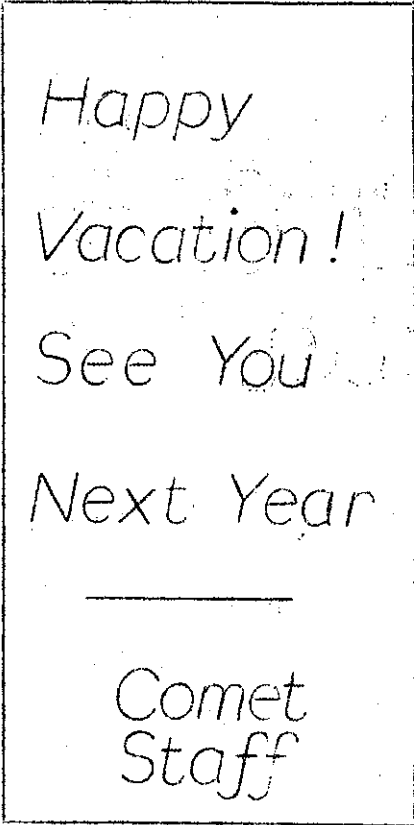 Happy
Vacation!
See You
Next Year
Comet
Staff